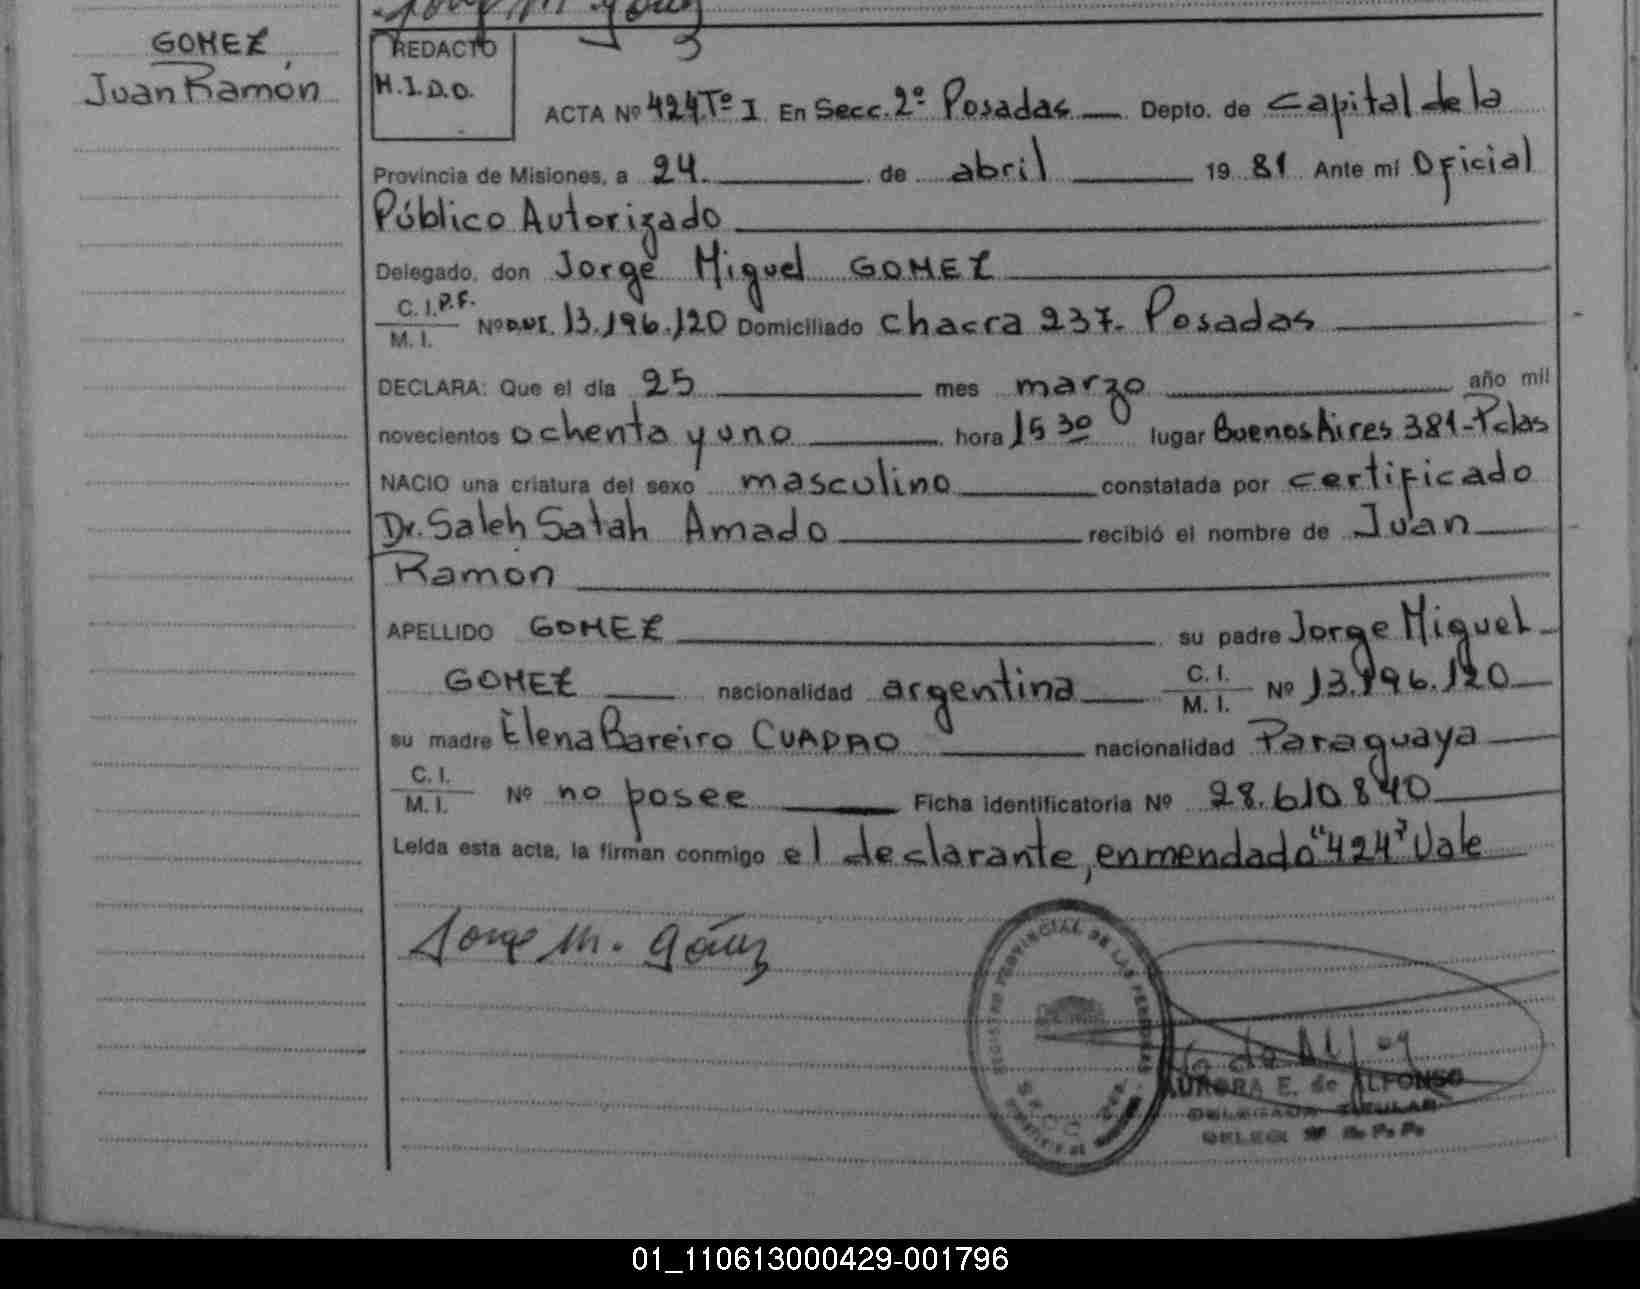 GOMEZ,
Juan Ramón
REDACTO
M.I.D.O.
ACTA Nº 424 Tº I En Secc. 2º Posadas Depto. de Capital de la
Provincia de Misiones, a 24 de abril 19 81 Ante mí Oficial
Público Autorizado
Delegado, don Jorge Miguel GOMEZ
C.I.P.F.
M. I. Nº D.N.I. 13.196.120 Domiciliado chacra 237. Posadas
DECLARA: Que el día 25 mes marzo año mil
novecientos ochenta y uno hora 15 30 lugar Buenos Aires 381-Pdas
NACIO una criatura del sexo masculino constatada por certificado
Dr. Saleh Satah Amado recibió el nombre de Juan
Ramón
APELLIDO GOMEZ su padre Jorge Miguel
GOMEZ nacionalidad argentina C. I. M. I. Nº 13.196.120
su madre Elena Bareiro CUADRO nacionalidad Paraguaya
C. I.
M. I. Nº no posee Ficha identificatoria Nº 28.610.840
Leída esta acta, la firman conmigo el declarante, enmendado "424" Vale
Jorge M. Gómez
REGISTRO PROVINCIAL DE LAS PERSONAS
SECC.
AURORA E. de ALFONSO
DELEGADA TITULAR
DELEG. R. P. P.
01_110613000429-001796